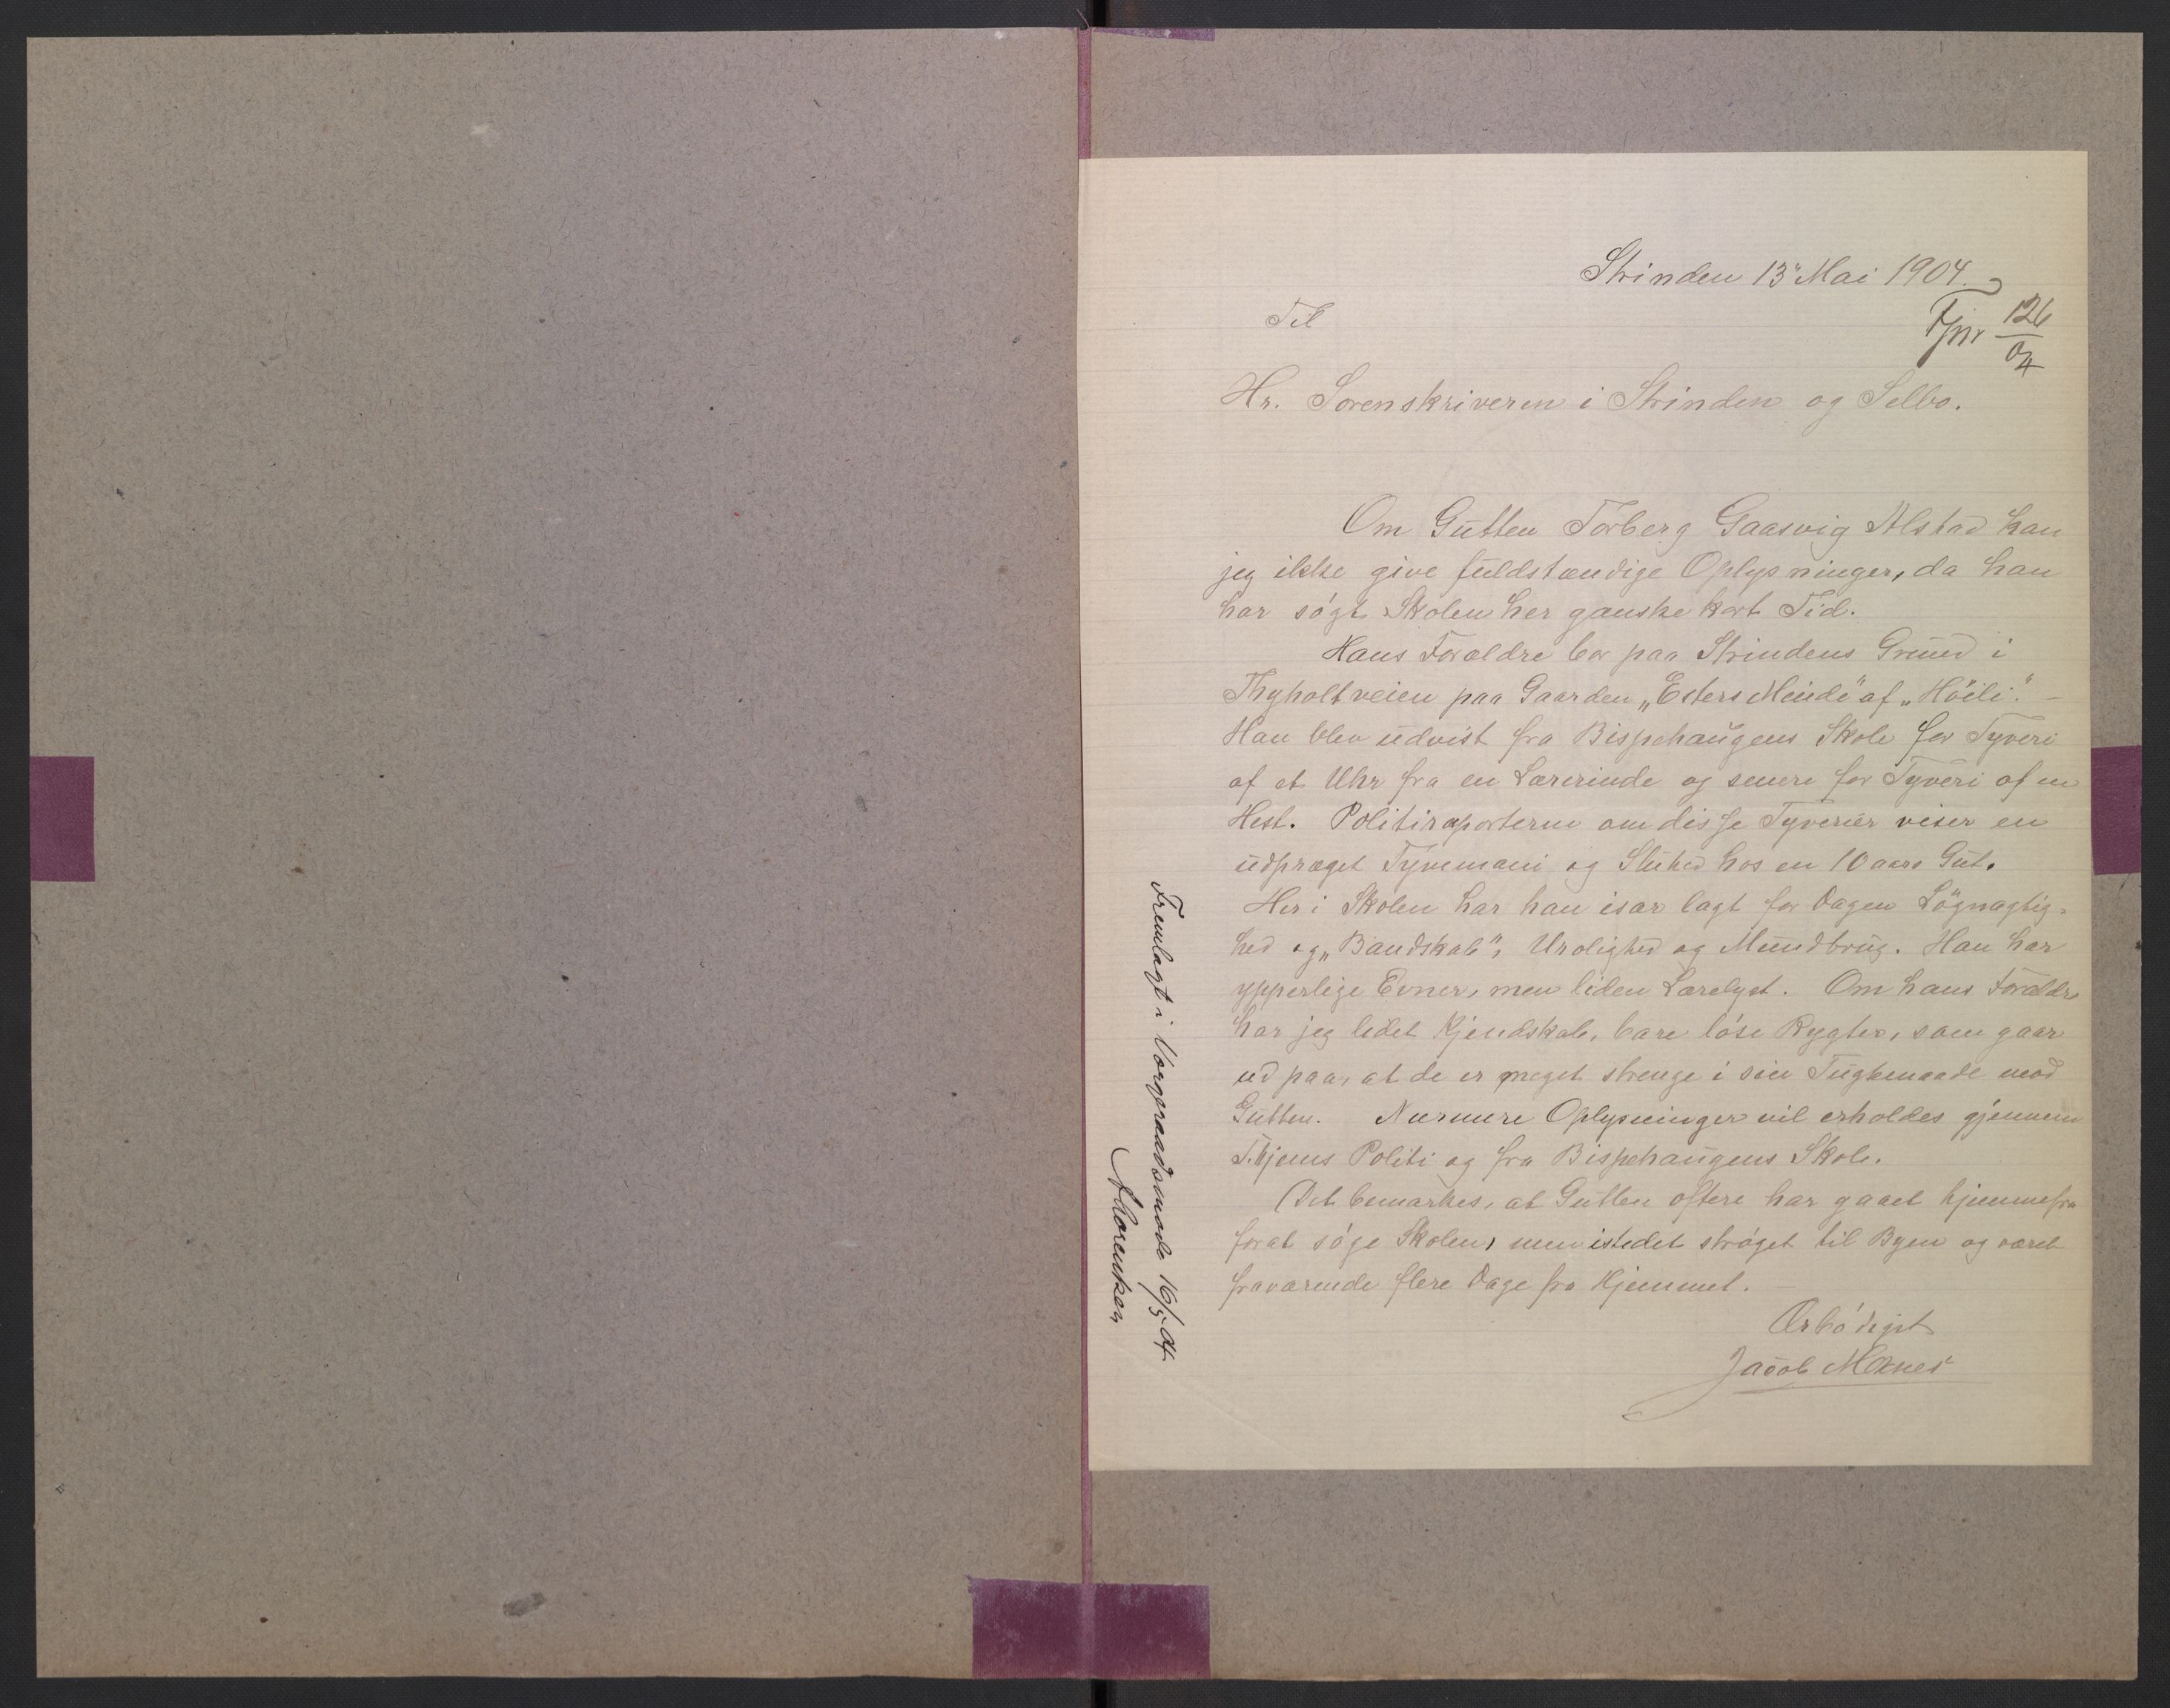 Strinden 13de Mai 1904.
Til
Fjnr 126/04
Hr. Sorenskriveren i Strinden og Selbo.
Om Gutten Torberg Gaasvig Alstad kan
jeg ikke give fuldstændige Oplysninger, da han
har søgt Skolen her ganske kort Tid.
Hans Forældre bor paa Strindens Grund i
Thyholtveien paa Gaarden „Esters Minde" af „Høili". –
Han blev udvist fra Bispehaugens Skole for Tyveri
af et Uhr fra en Lærerinde og senere for Tyveri af en
Hest. Politiraporterne om disse Tyverier viser en
udpræget Tyvemani og Sluhed hos en 10 aars Gut.
Her i Skolen har han især lagt for Dagen Løgnagtig-
hed og „Bandskab", Urolighed og Mundbrug. Han har
ypperlige Evner, men liden Lærelyst. Om hans Forældre
har jeg lidet Kjendskab, bare løse Rygter, som gaar
ud paa, at de er meget strenge i sin Tugtemaade mod
Gutten. Nærmere Oplysninger vil erholdes gjennem
T.hjems Politi og fra Bispehaugens Skole.
Det bemærkes, at Gutten oftere har gaaet hjemmefra
forat søge Skolen, men istedet strøget til Byen og været
fraværende flere Dage fra Hjemmet.
Ærbødigst
Jacob
Fremlagt i Vergeraadsmøde 16/5 04